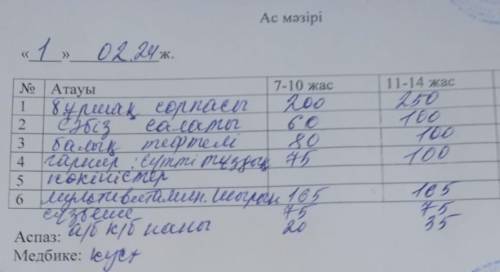 Ас мәзірі
«1» 02.24 ж.
№ Атауы 7-10 жас 11-14 жас
1 бұршақ сорпасы 200 250
2 сәбіз салаты 60 100
3 балық тефтелі 80 100
4 гарнир: сүтті тұздық 75 100
5 көкөністер
6 мультивитамин. шырын 165 165
75 75
Аспаз: а/б к/б наны 20 35
Медбике: